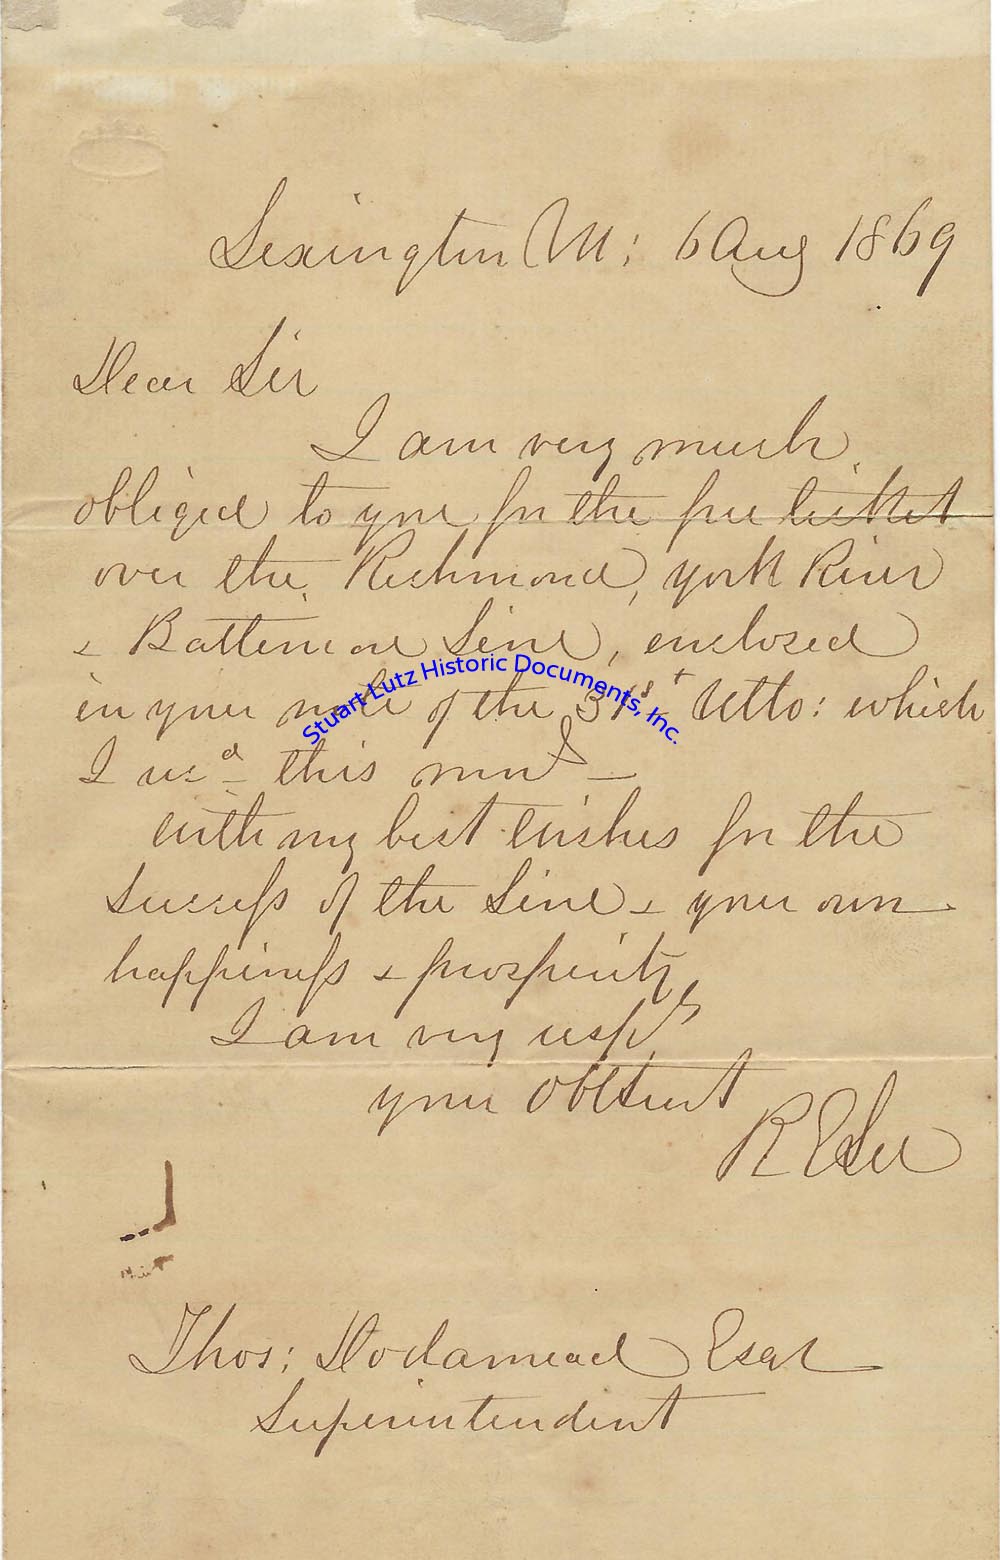 Lexington Va: 6 Aug 1869
Dear Sir
I am very much
obliged to you for the free ticket
over the Richmond, York River
& Baltimore Line, enclosed
in your note of the 31st Ulto: which
Stuart Lutz Historic Documents, Inc.
I recd this
with my best wishes for the
success of the Line & your own
happiness & prosperity
I am very respy
your obtservt
R E Lee
Thos: Dodamead Esqr
Superintendent